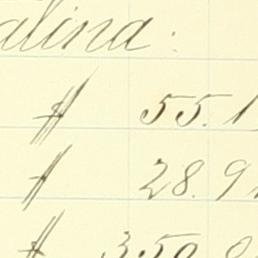 alina:
# 55.1
# 28.9
# 350.8